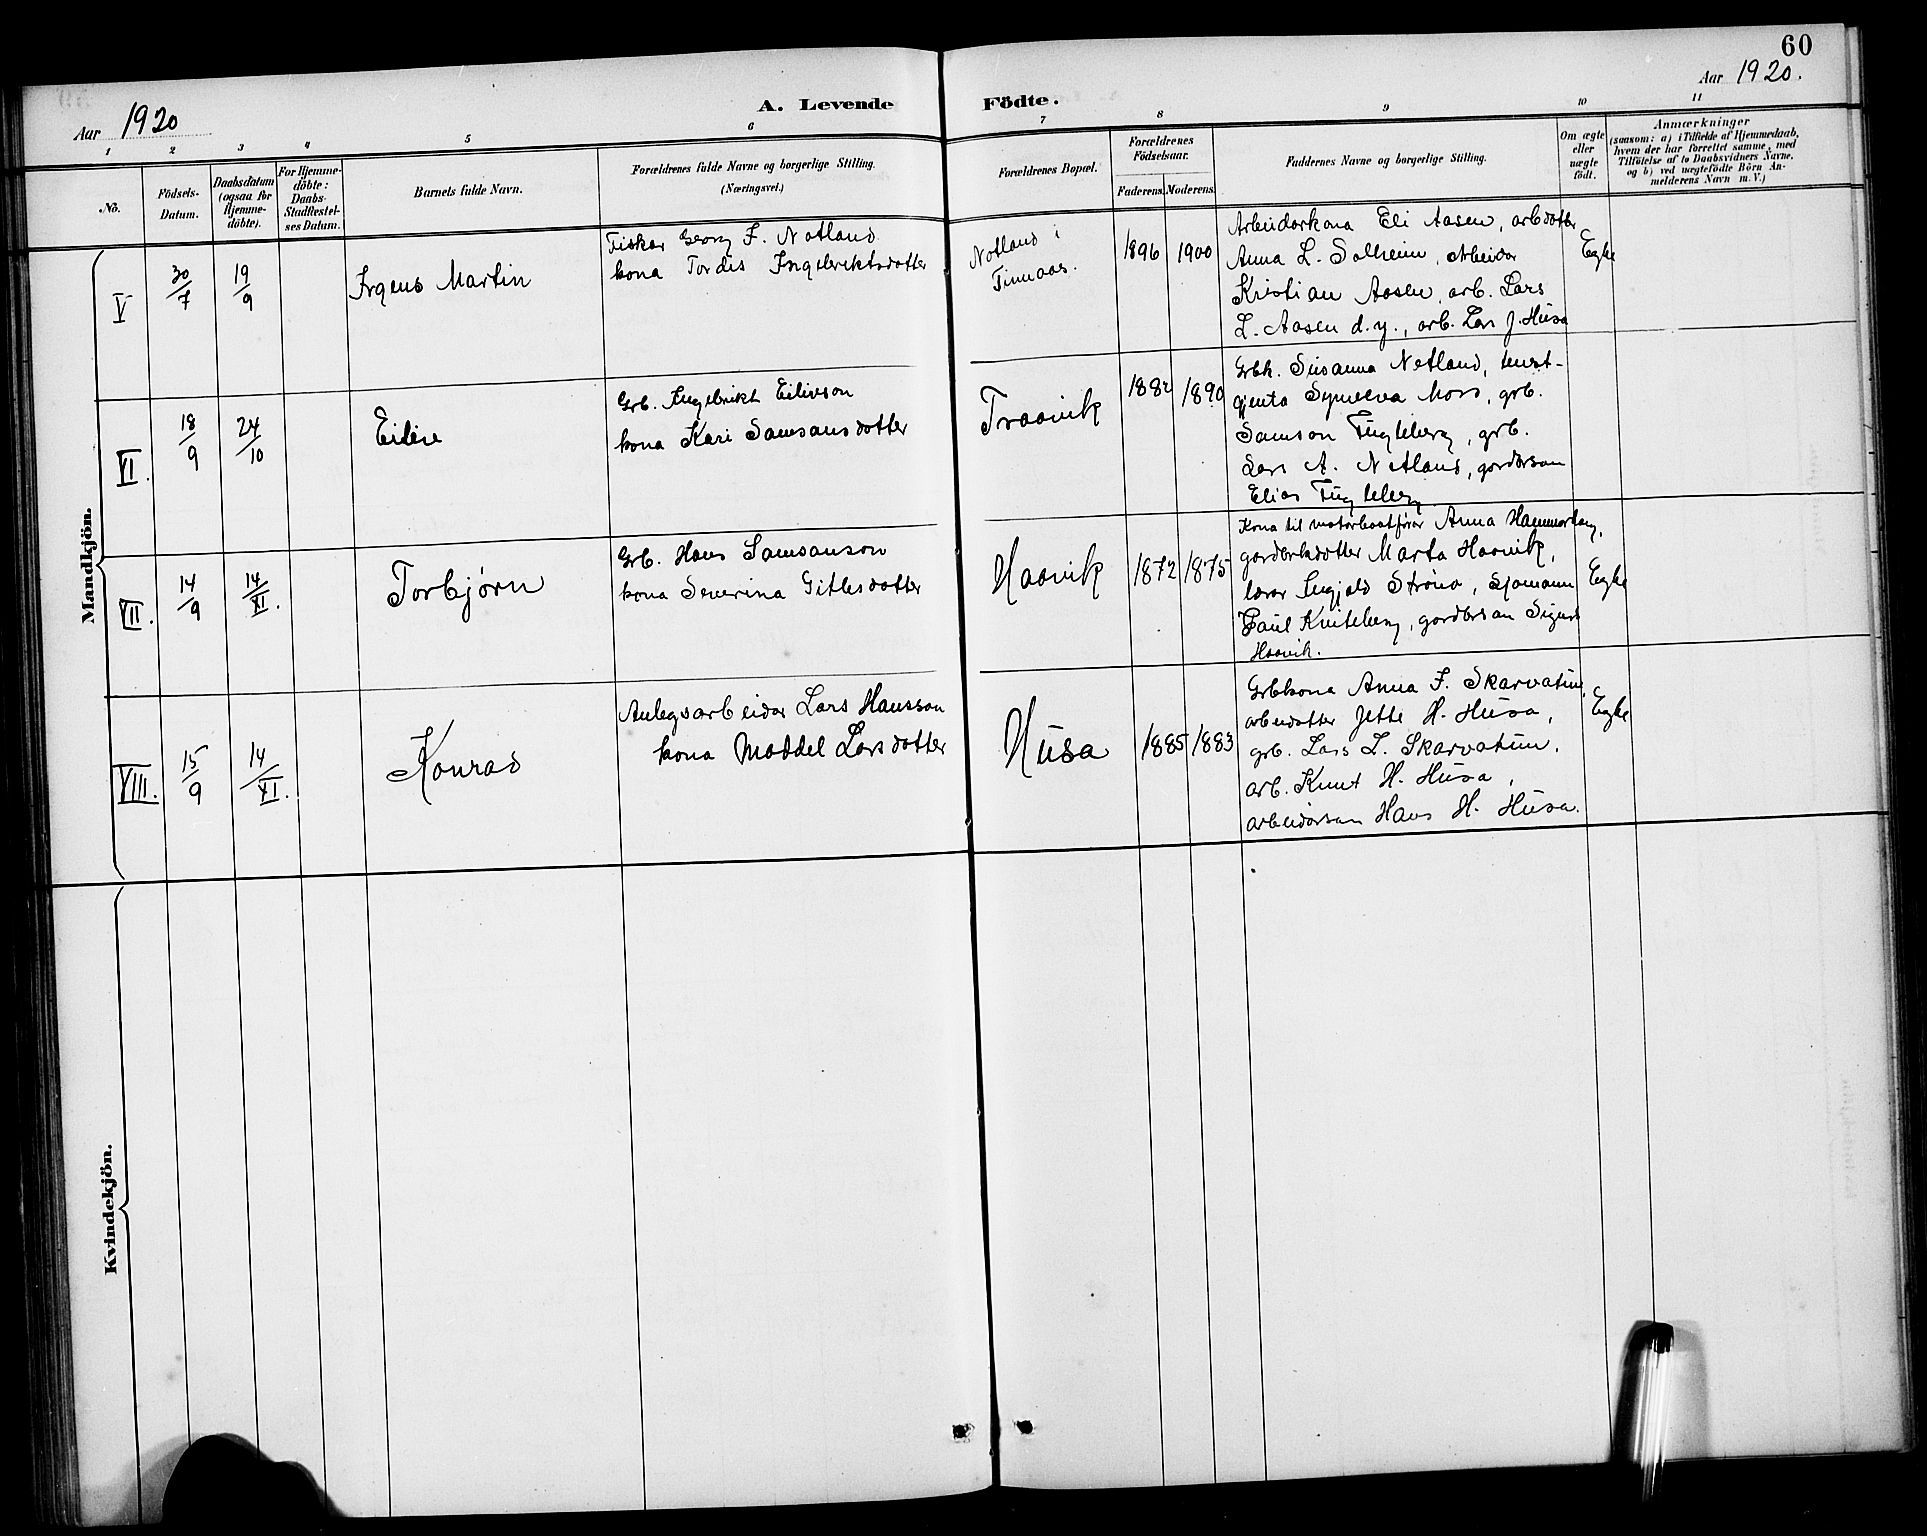 60
Aar 1920.
Aar 1920
A. Levende Födte.
1 2 3 4 5 6 7 8 9 10 11
No.
Födsels-
Datum.
Daabsdatum
(ogsaa for
Hjemme-
döbte).
For Hjemme-
döbte:
Daabs-
Stadfæstel-
ses Datum.
Barnets fulde Navn.
Forældrenes fulde Navne og borgerlige Stilling.
(Næringsvei.)
Forældrenes Bopæl.
Forældrenes
Födselsaar.
Faderens. Moderens.
Faddernes Navne og borgerlige Stilling.
Om ægte
eller
uægte
födt.
Anmærkninger
(saasom: a) i Tilfælde af Hjemmedaab,
hvem der har forrettet samme, med
Tilföielse af to Daabsvidners Navne.
og b) ved uægtefödte Börn An-
melderens Navn m. V.)
Mandkjön.
V
30/7
19/9
Irgens Martin
Fiskar Georg F. Notland
kona Tordis Ingebriktsdotter
Notland i
Finnaas.
1896
1900
Arbeidarkona Eli Aasen, arbdotter
Anna L. Solheim, arbeidar
Kristian Aasen, arb. Lars
L. Aasen d.y., arb. Lars J. Husa
Egte
VI.
18/9
24/10
Eiliv
Grb. Ingebrikt Eilivson
kona Kari Samsonsdotter
Traavik
1882
1890
Grbk. Susanna Netland, tenest-
gjenta Synneva Moss, grb.
Samson Fugleberg, grb.
Lars A. Netland, gardbrson
Elias Fugleberg
VII.
14/9
14/XI.
Torbjørn
Grb. Hans Samsonson
kona Severina Gitlesdotter
Haavik
1872
1875
Kona til motorbaatførar Anna
gardbrdotter Marta Haavik,
lærar Ingjald Strøno, sjømann
Paul Kviteberg, gardbrson Sigurd
Haavik.
Egte
VIII.
15/9
14/XI.
Konrad
Anlegsarbeidar Lars Hansson
kona Maddel Larsdotter
Husa
1885
1883
Grbkona Anna F. Skarvatun,
arbeidotter Jette H. Husa,
grb. Lars L. Skarvatun,
arb. Knut H. Husa,
arbeidarson Hans H. Husa.
Egte
Kvindekjön.